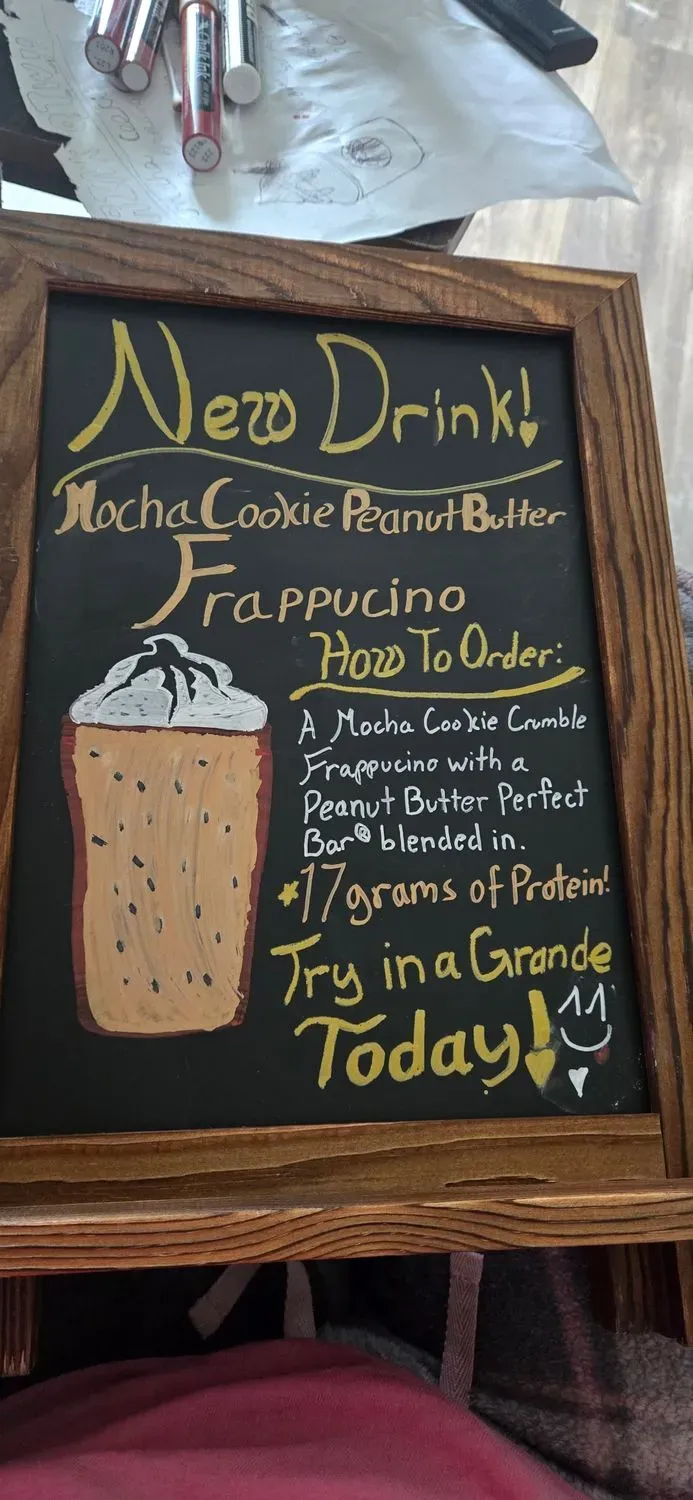 New Drink!
Mocha Cookie Peanut Butter
Frappucino
How To Order:
A Mocha Cookie Crumble
Frappucino with a
Peanut Butter Perfect
Bar® blended in.
*17grams of Protein!
Try in a Grande
Today!